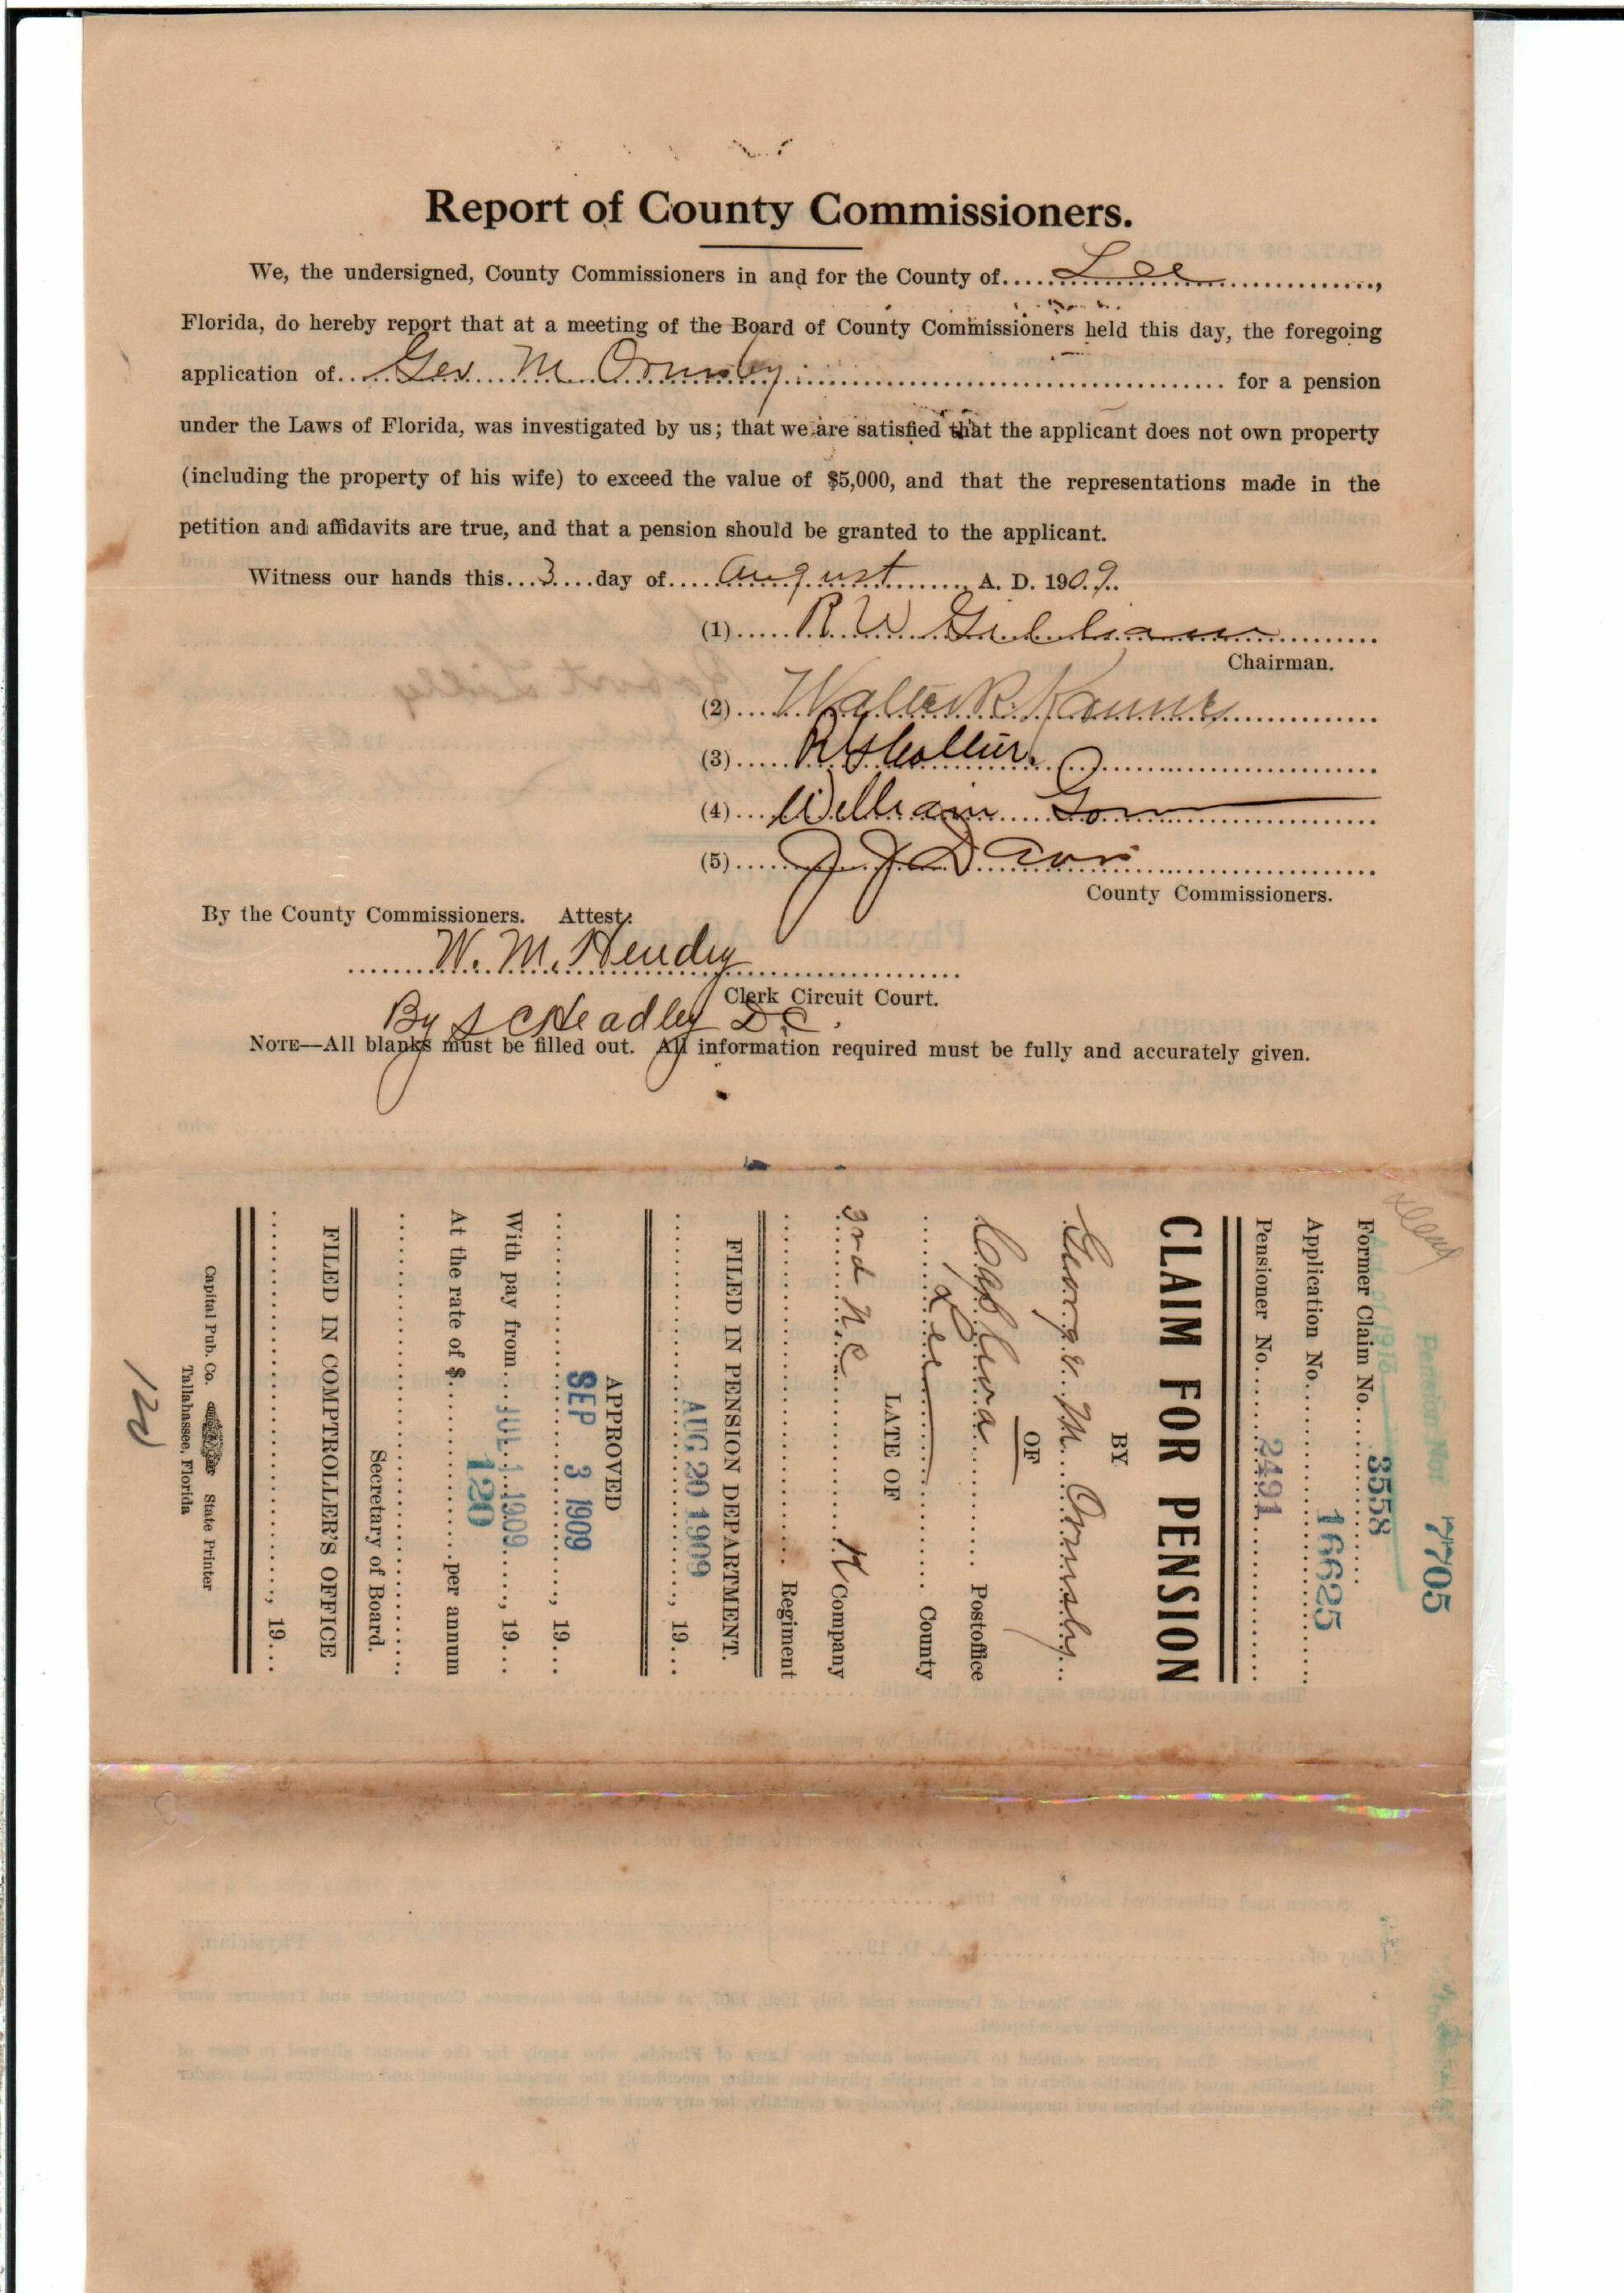 Report of County Commissioners.
We, the undersigned, County Commissioners in and for the County of Lee,
Florida, do hereby report that at a meeting of the Board of County Commissioners held this day, the foregoing
application of Geo. M. Ormsby for a pension
under the Laws of Florida, was investigated by us; that we are satisfied that the applicant does not own property
(including the property of his wife) to exceed the value of $5,000, and that the representations made in the
petition and affidavits are true, and that a pension should be granted to the applicant.
Witness our hands this 3 day of August A. D. 1909.
(1) R W Gilliam
Chairman.
(2) Walter R.
(3)
(4) William
(5) J J Davis
County Commissioners.
By the County Commissioners. Attest:
W. M. Hendry
Clerk Circuit Court.
By S C Headley D.C.
NOTE—All blanks must be filled out. All information required must be fully and accurately given.
Pension No. 7705
Former Claim No. 3558
Application No. 16625
Pensioner No. 2491
CLAIM FOR PENSION
BY
George M Ormsby
OF
Captiva Postoffice
Lee County
LATE OF
3rd N.C. K Company
Regiment
FILED IN PENSION DEPARTMENT.
AUG 20 1909, 19
APPROVED
SEP 3 1909, 19
With pay from JUL 1 1909, 19
At the rate of $ 120 per annum
Secretary of Board.
FILED IN COMPTROLLER'S OFFICE
, 19
Capital Pub. Co. State Printer
Tallahassee, Florida
120